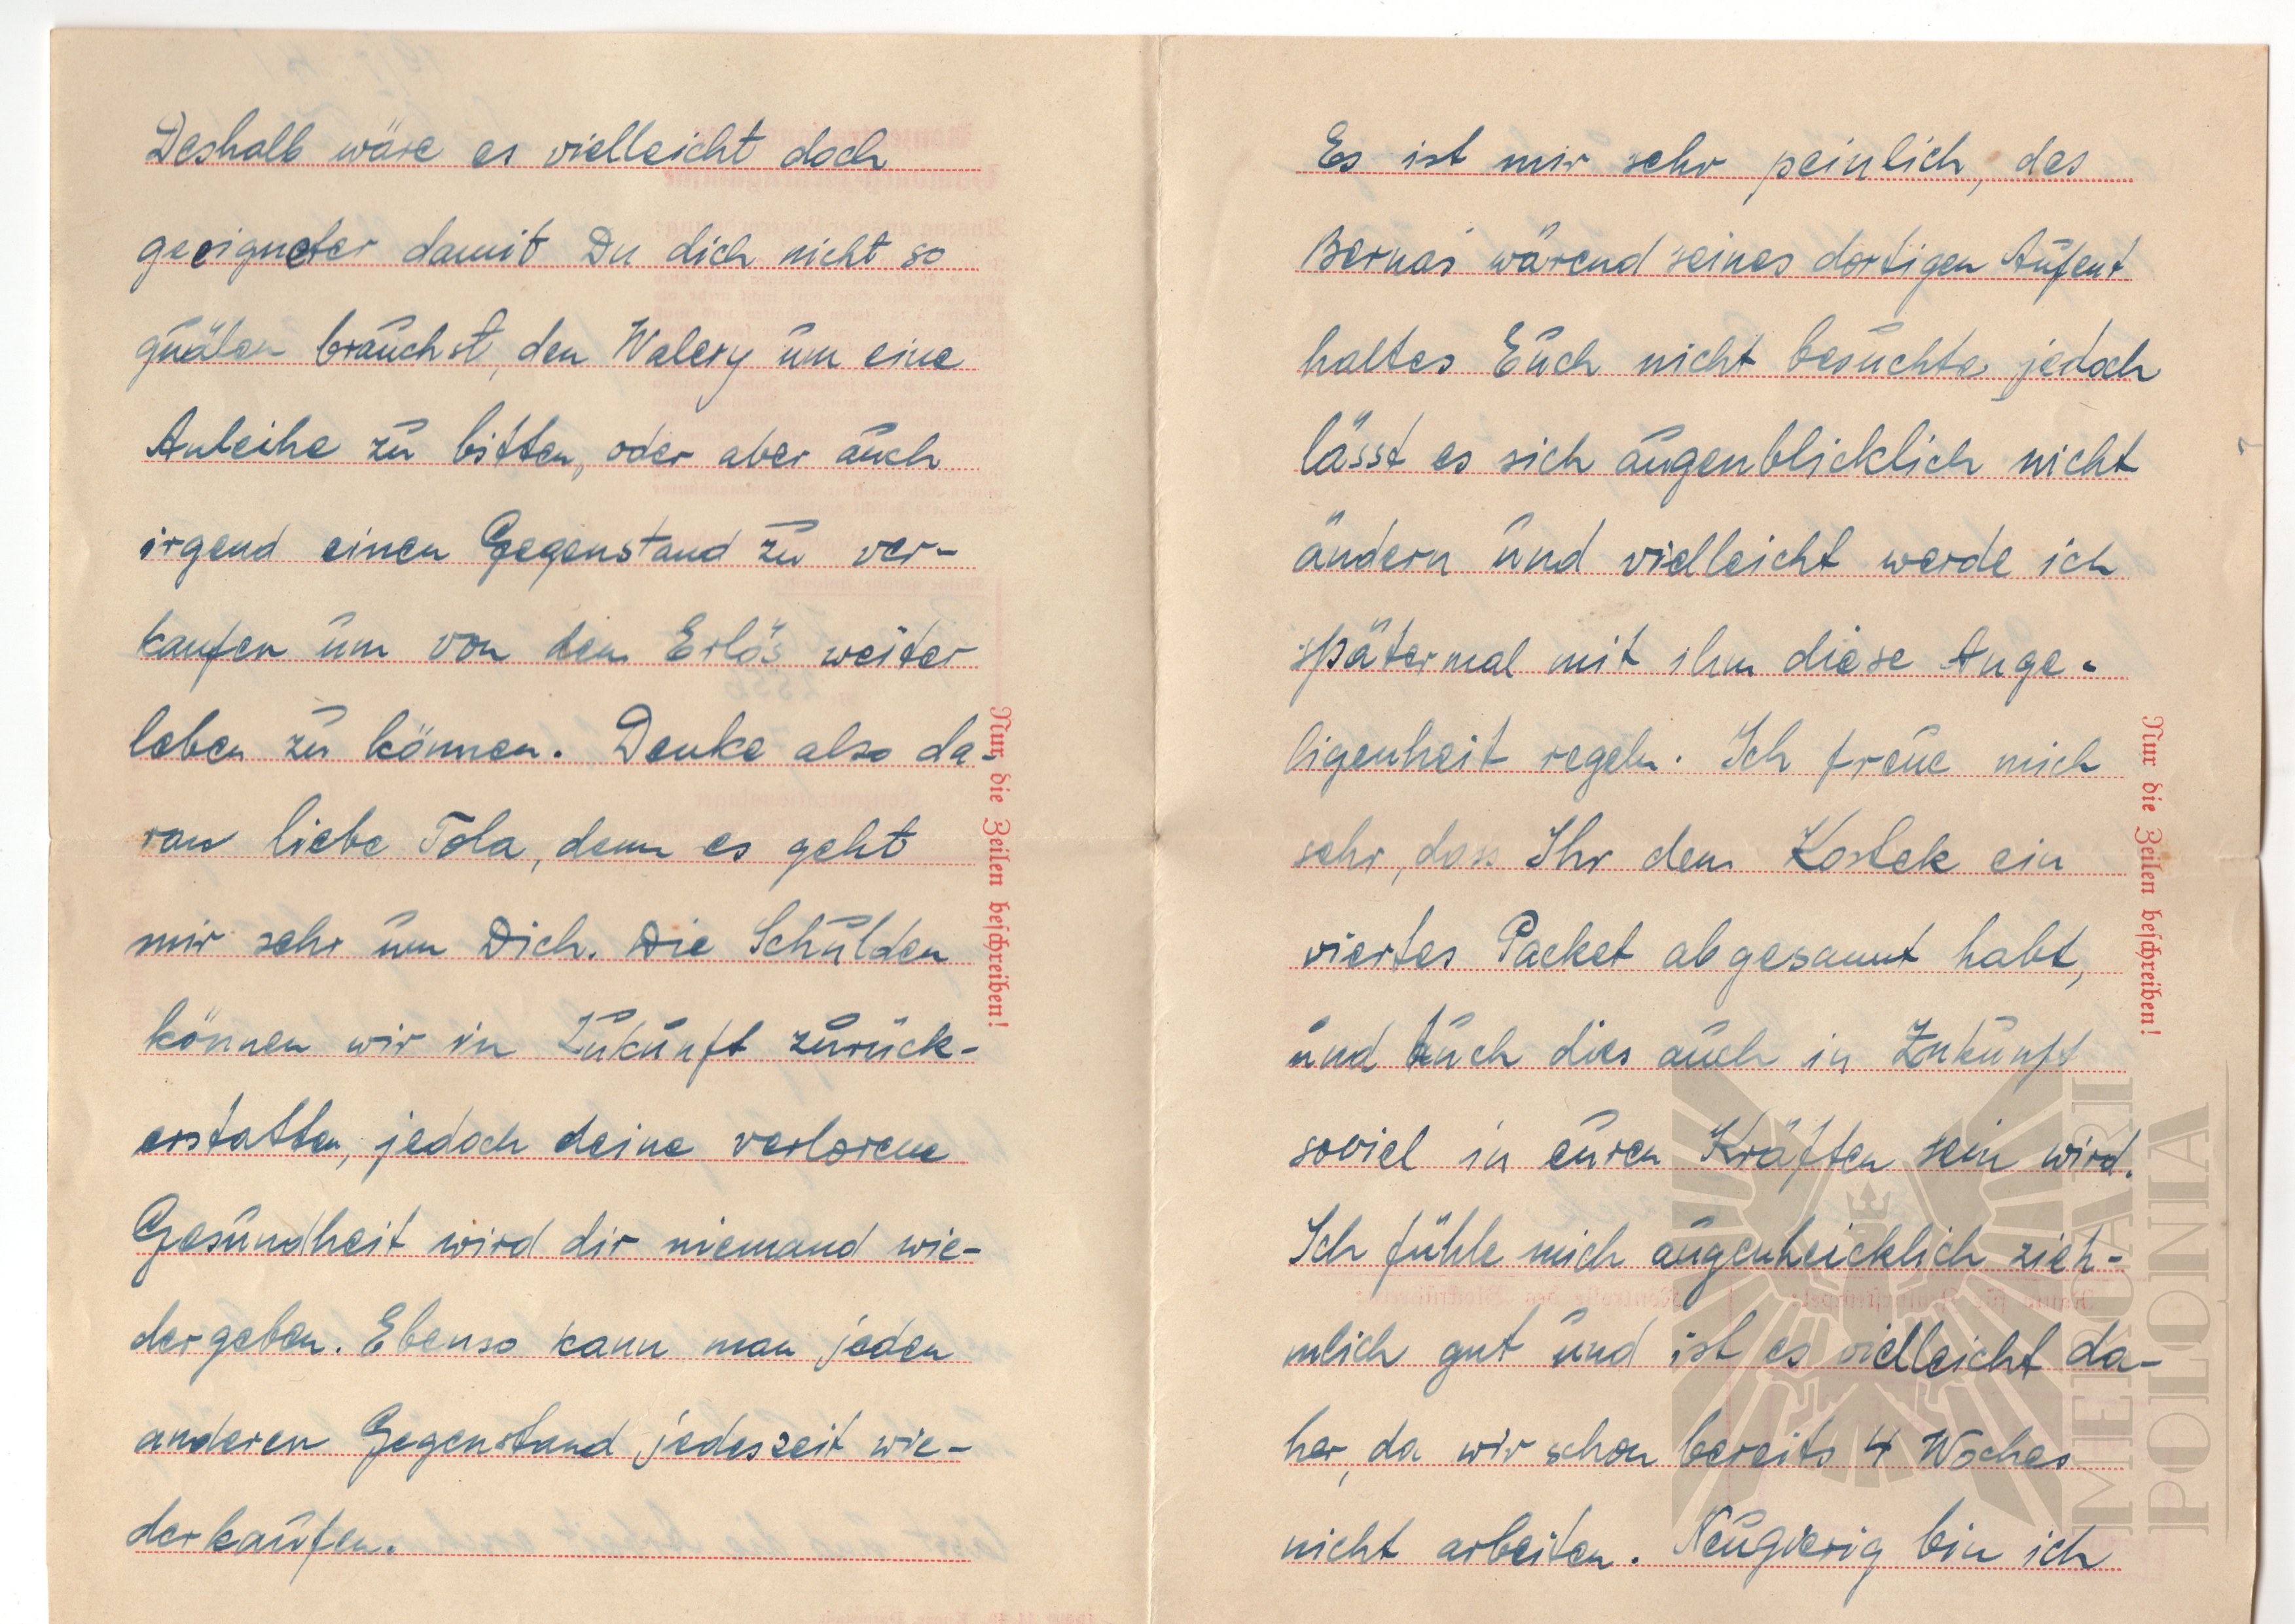 Deshalb wäre es vielleicht doch
geeigneter damit Du dich nicht so
quälen brauchst, den Walery um eine
Anleihe zu bitten, oder aber auch
irgend einen Gegenstand zu ver-
kaufen um von dem Erlös weiter
leben zu können. Denke also da-
ran liebe Tola, denn es geht
mir sehr um Dich. Die Schulden
können wir in Zukunft zurück-
erstatten, jedoch deine verlorene
Gesundheit wird dir niemand wie-
dergeben. Ebenso kann man jeden
anderen Gegenstand jedeszeit wie-
derkaufen.
Nur die Zeilen beschreiben!
Es ist mir sehr peinlich, das
Bernaś wärend seines dortigen Aufent
haltes Euch nicht besuchte jedoch
lässt es sich augenblicklich nicht
ändern und vielleicht werde ich
spätermal mit ihm diese Ange-
ligenheit regeln. Ich freue mich
sehr, dass Ihr dem Kostek ein
viertes Packet abgesannt habt,
und Euch dies auch in Zukunft
soviel in euren Kräften sein wird.
Ich fühle mich augenheicklich zieh-
mlich gut und ist es vielleicht da-
her, da wir schon bereits 4 Woches
nicht arbeiten. Neugierig bin ich
Nur die Zeilen beschreiben!
MEMORIA
POLONIA